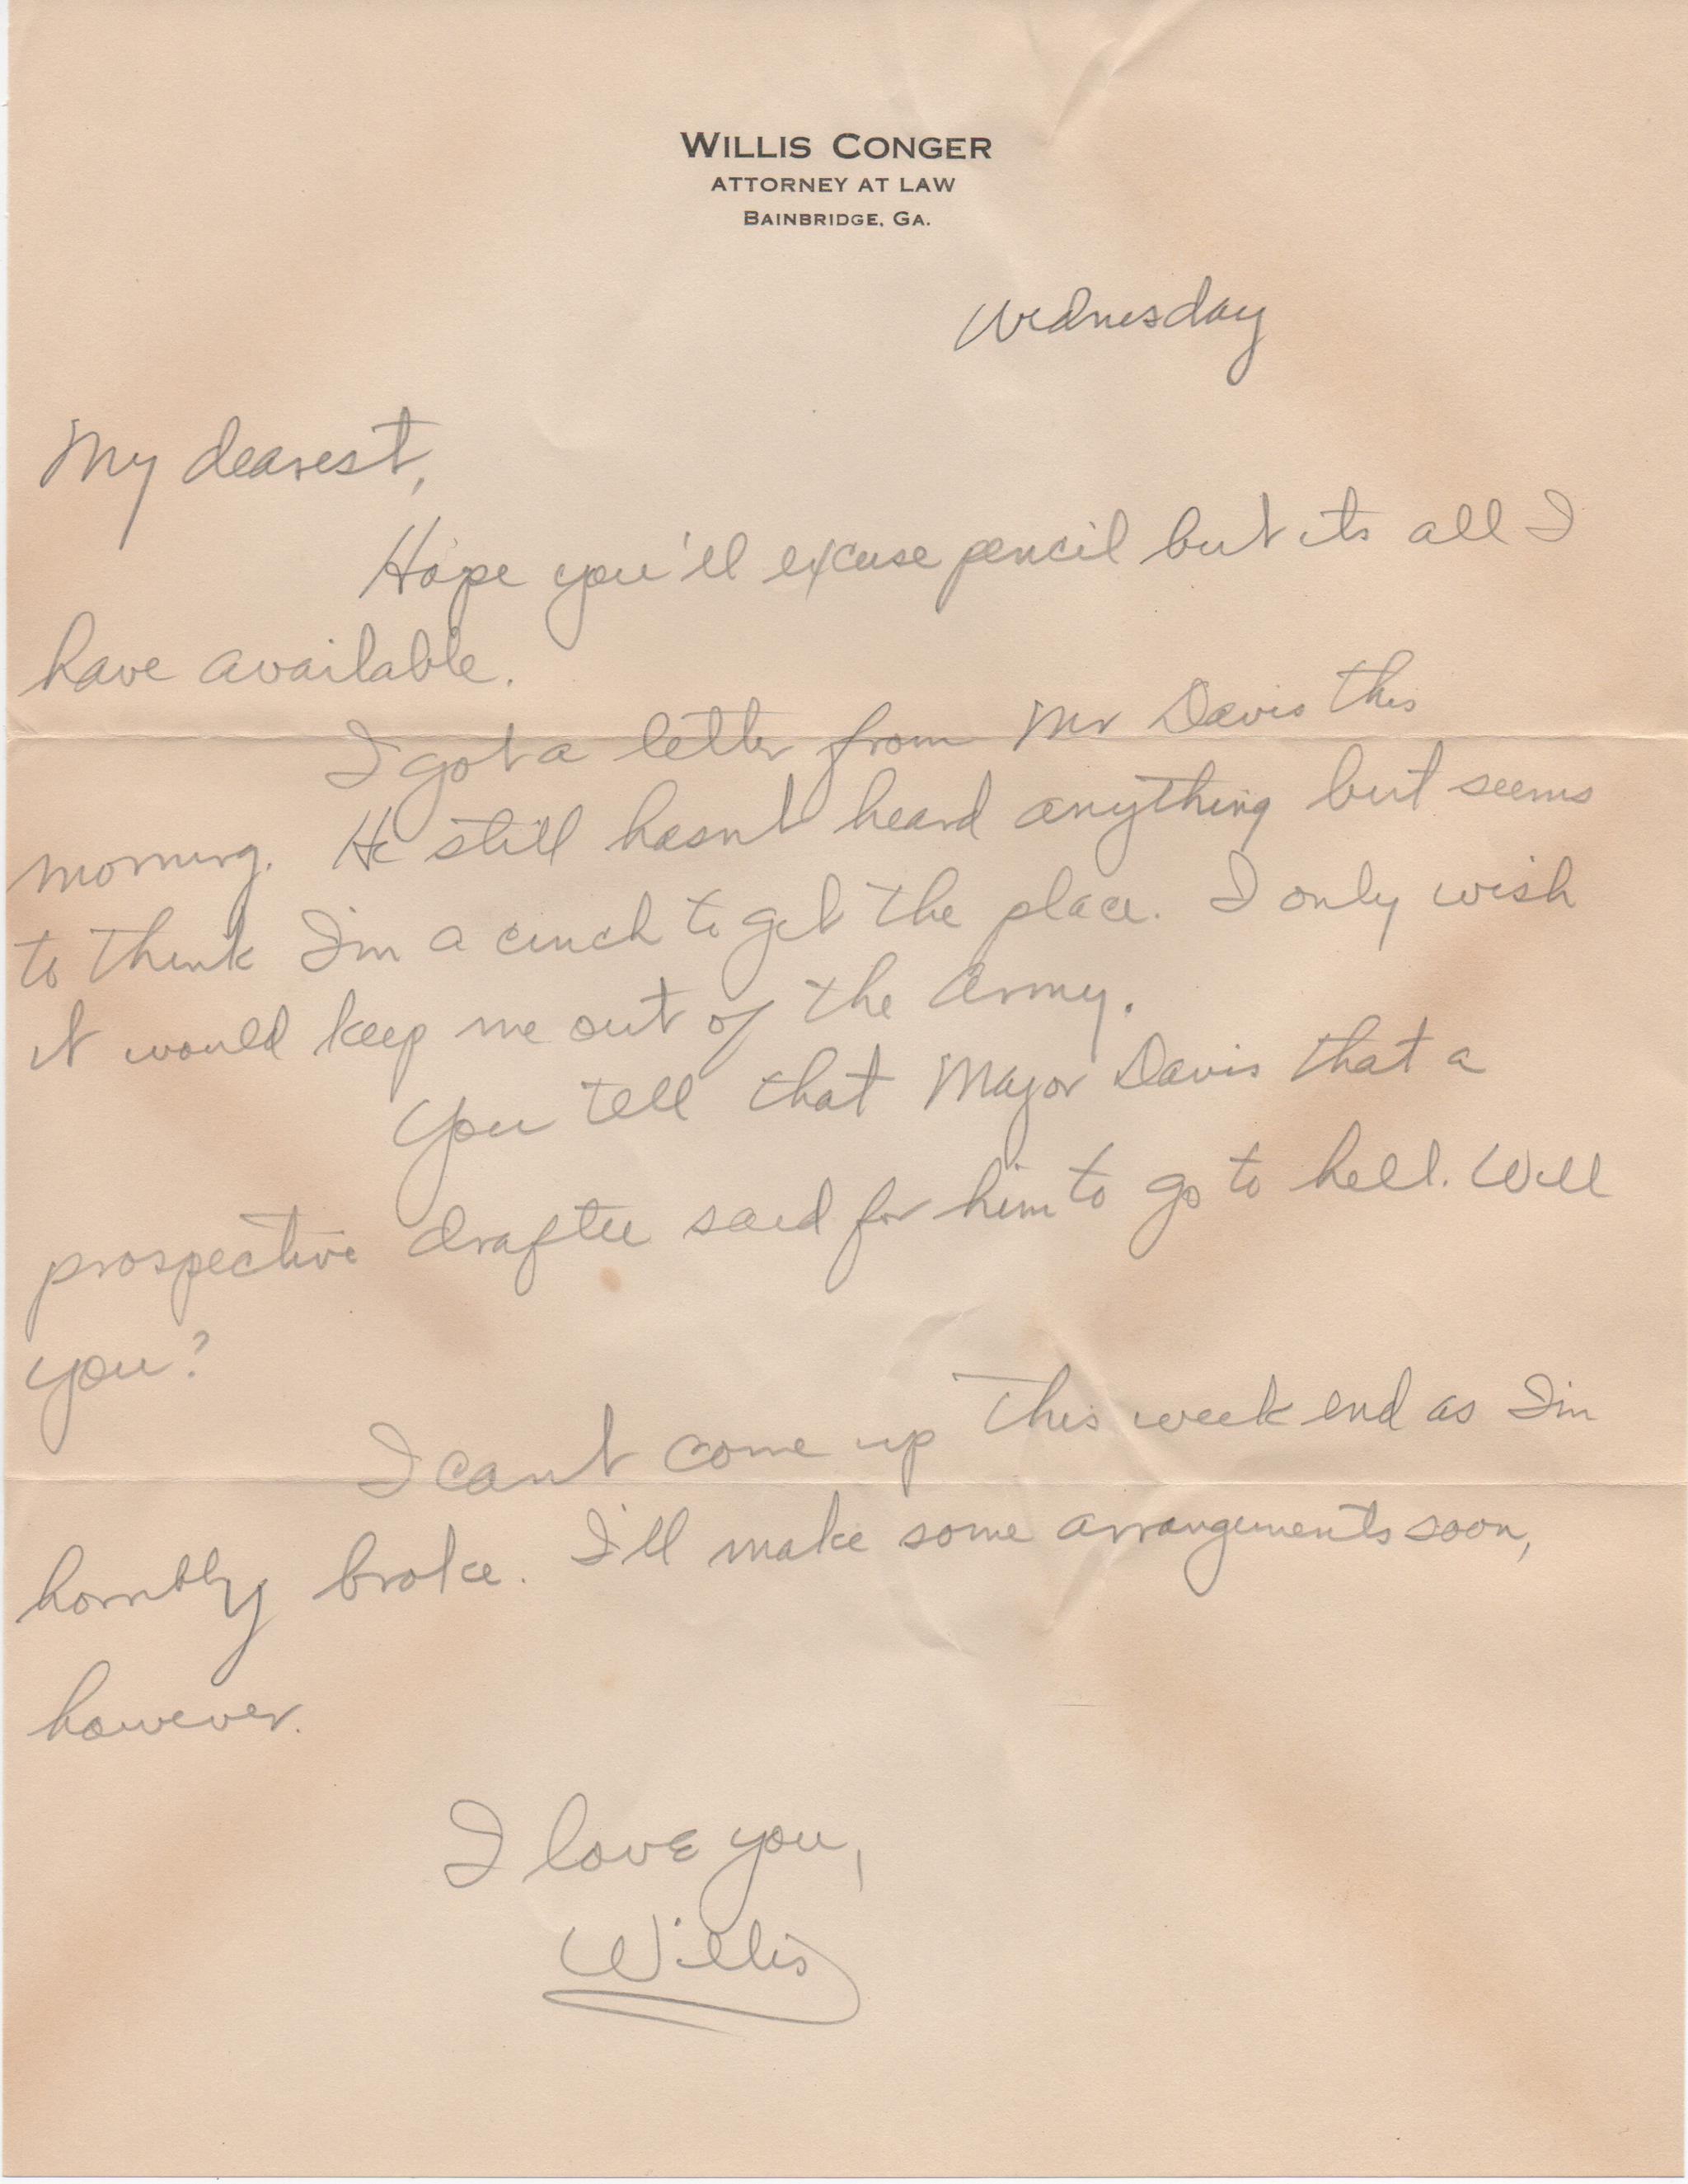 WILLIS CONGER
ATTORNEY AT LAW
BAINBRIDGE, GA.
Wednesday
My dearest,
Hope you'll excuse pencil but its all I
have available.
I got a letter from Mr Davis this
morning. He still hasnt heard anything but seems
to think I'm a cinch to get the place. I only wish
it would keep me out of the army.
You tell that Major Davis that a
prospective draftee said for him to go to hell. Will
you?
I cant come up this week end as I'm
horribly broke. I'll make some arrangements soon,
however.
I love you,
Willis